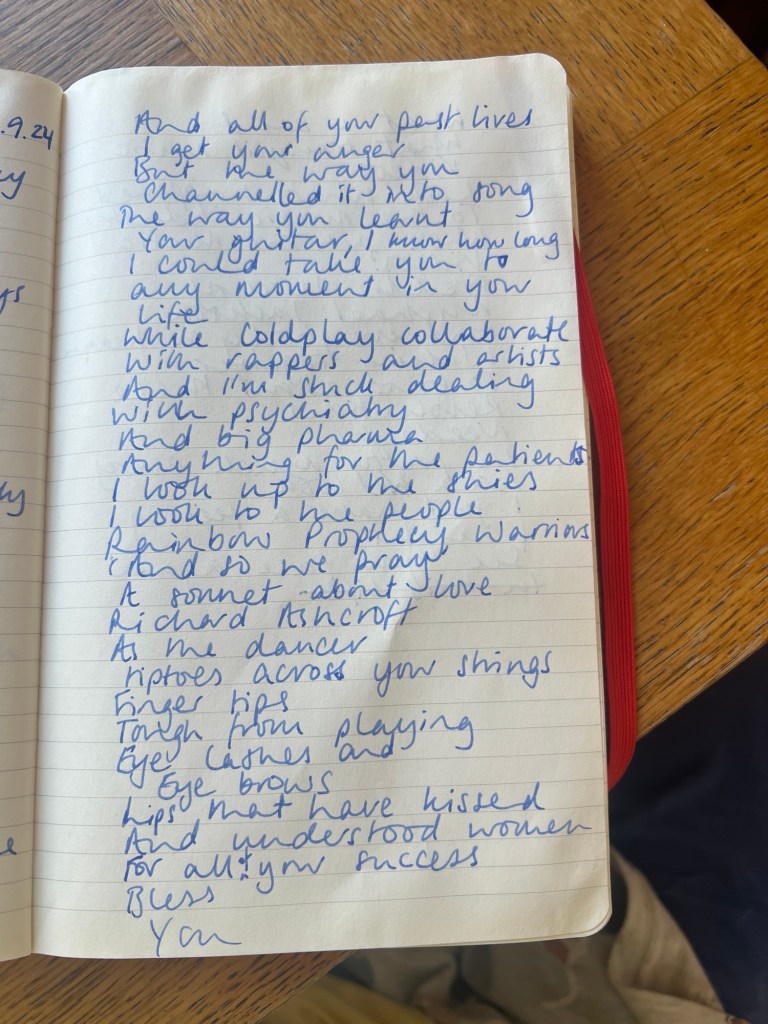 .9.24
And all of your past lives
I get your anger
But the way you
channelled it into song
The way you learnt
Your guitar, I know how long
I could take you to
any moment in your
Life
While Coldplay collaborate
With rappers and artists
And I'm stuck dealing
With psychiatry
And big pharma
Anything for the patients
I look up to the skies
I look to the people
Rainbow Prophecy Warriors
'And so we pray'
A sonnet about love
Richard Ashcroft
As the dancer
tiptoes across your strings
Finger tips
Tough from playing
Eye lashes and
Eye brows
Lips that have kissed
And understood women
For all of your success
Bless
You